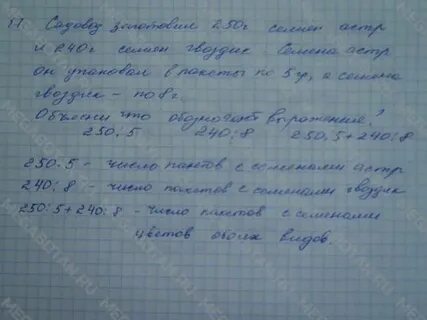 17. Садовод заготовил 250г семян астр
и 240г семян гвоздик. Семена астр
он упаковал в пакеты по 5 г, а семена
гвоздик - по 8 г.
Объясни что обозначают выражения?
250:5 240:8 250:5+240:8
250:5 - число пакетов с семенами астр
240:8 - число пакетов с семенами гвоздик
250:5+240:8 - число пакетов с семенами
цветов обоих видов.